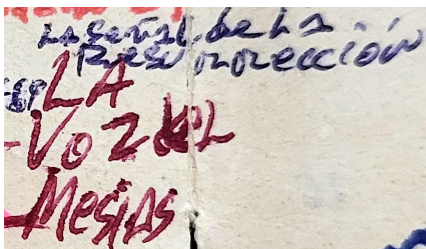 La señal de la
Resurrección
LA
Voz del
Mesías